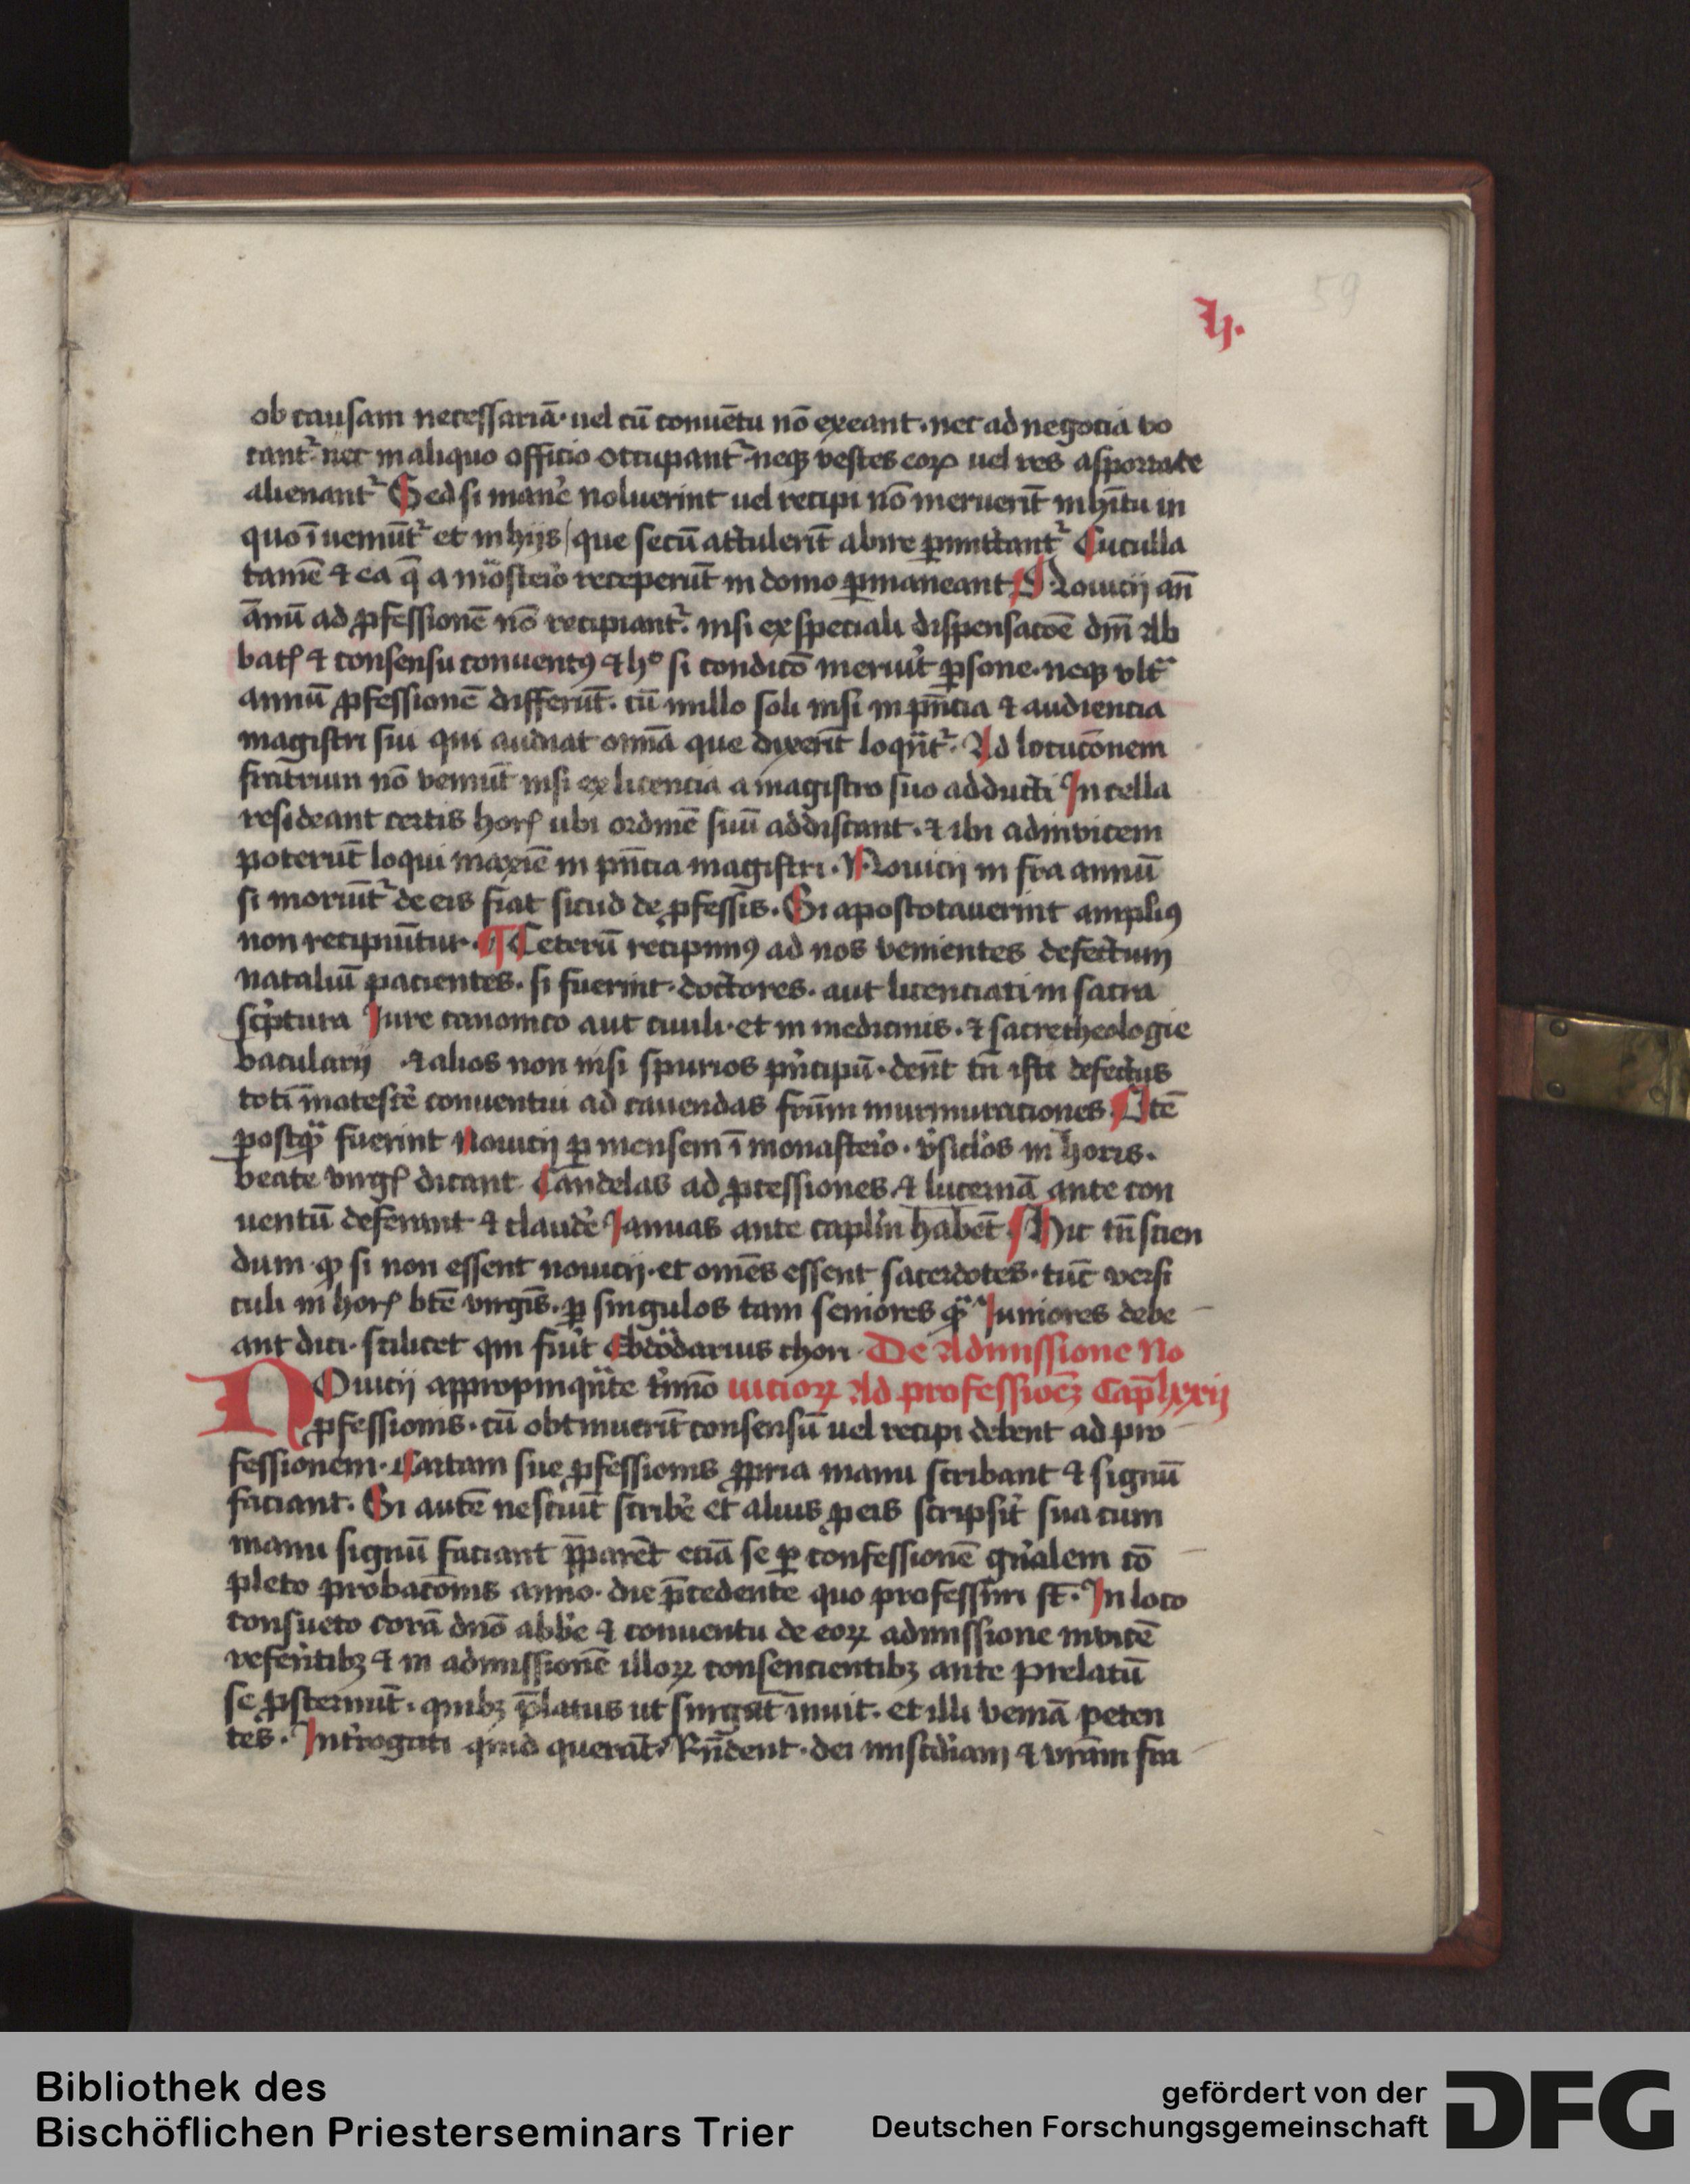 59
h.
ob causam necessariā· uel cū conuētu nō exeant· nec ad negocia vo
cant᷑· nec in aliquo officio occupant᷑· neqꝫ vestes eoꝝ uel res asportate
alienant᷑ Sed si manˀe noluerint uel recipi nō meruerīt in hītu in
quo īueniūt᷑ et in hijs que secū attulerīt abire ꝑmittant᷑ Cuculla
tamē ⁊ ea q̄ a mōsteˀio receperūt in domo ꝑmaneant Nouicij an̄
ānū ad ꝓfessionē nō recipiant᷑· nisi ex speciali dispensacōe dn̄i Ab
batꝭ ⁊ consensu conuentꝰ ⁊ hᵒ si condicō meruīt ꝑsone· neqꝫ vltᵃ
annū ꝓfessionē differūt· cū nullo soli nisi in pn̄cia ⁊ audiencia
magistri sui qui audiat omīa que dixerīt loqūt᷑· Ad locucōnem
fratrum nō veniūt nisi ex licencia a magistro suo adducti In cella
resideant certis horꝭ ubi ordinē suū addiscant· ⁊ ibi adinvicem
poterūt loqui maxīe in pn̄cia magistri· Nouicij in fra annū
si moriūt᷑ de eis fiat sicud de ꝓfessis· Si apostotauerint ampliꝰ
non recipiūtur· ¶ Ceterū recipimꝰ ad nos venientes defectum
nataliū pacientes· si fuerint· doctores· aut licenciati in sacra
scˀptura Jure canonico aut ciuili· et in medicinis· ⁊ sacre theologie
bacularij · ⁊ alios non nisi spurios pˀncipū· den̄t tn̄ isti defectus
toti māifestˀe conuentui ad cauendas frūm murmuraciones Itē
postqᵃ̄ fuerint Nouicij ꝑ mensem ī monasteˀio· vˀsiclōs in horis·
beate virgꝭ dicant Candelas ad ꝓcessiones ⁊ lucernā ante con
uentū deferant ⁊ claudˀe Januas ante caplˀm habēt Hic tn̄ scien
dum· ꝙ si non essent nouicij· et omēs essent sacerdotes· tūc versi
culi in horꝭ btē virgīs· ꝑ singulos tam seniores qᵃ̄ Juniores debe
ant dici· scilicet qui fuīt ebdōdarius chori De Admissione No
NOuicij appropinqᵃ̄te tˀmīo uicioꝝ Ad professiōeꝫ Cap̄ lxxij
ꝓfessionis· cū obtinuerīt consensū uel recipi debent ad pro
fessionem· Cartam sue ꝓfessionis ꝓpria manu scribant ⁊ signū
faciant· Si autē nesciūt scribˀe et alius ꝓ eis scripsīt sua cum
manu signū faciant p̄parēt eciā se ꝑ confessionē gnˀalem cō
pleto probacōnis anno· die p̄cedente quo professuri sūt· In loco
consueto corā dnō abbˀe ⁊ conuentu de eoꝝ admissione invicē
referˀtibꝫ ⁊ in admissionē illoꝝ consencientibꝫ ante prelatū
se ꝓsternūt· quibꝫ p̄latus ut surgāt īnuit· et illi veniā peten
tes· Intˀrogati quid querāt· Rn̄dent· dei miscdˀiam ⁊ vrām fra
Bibliothek des
Bischöflichen Priesterseminars Trier
gefördert von der
Deutschen Forschungsgemeinschaft
DFG